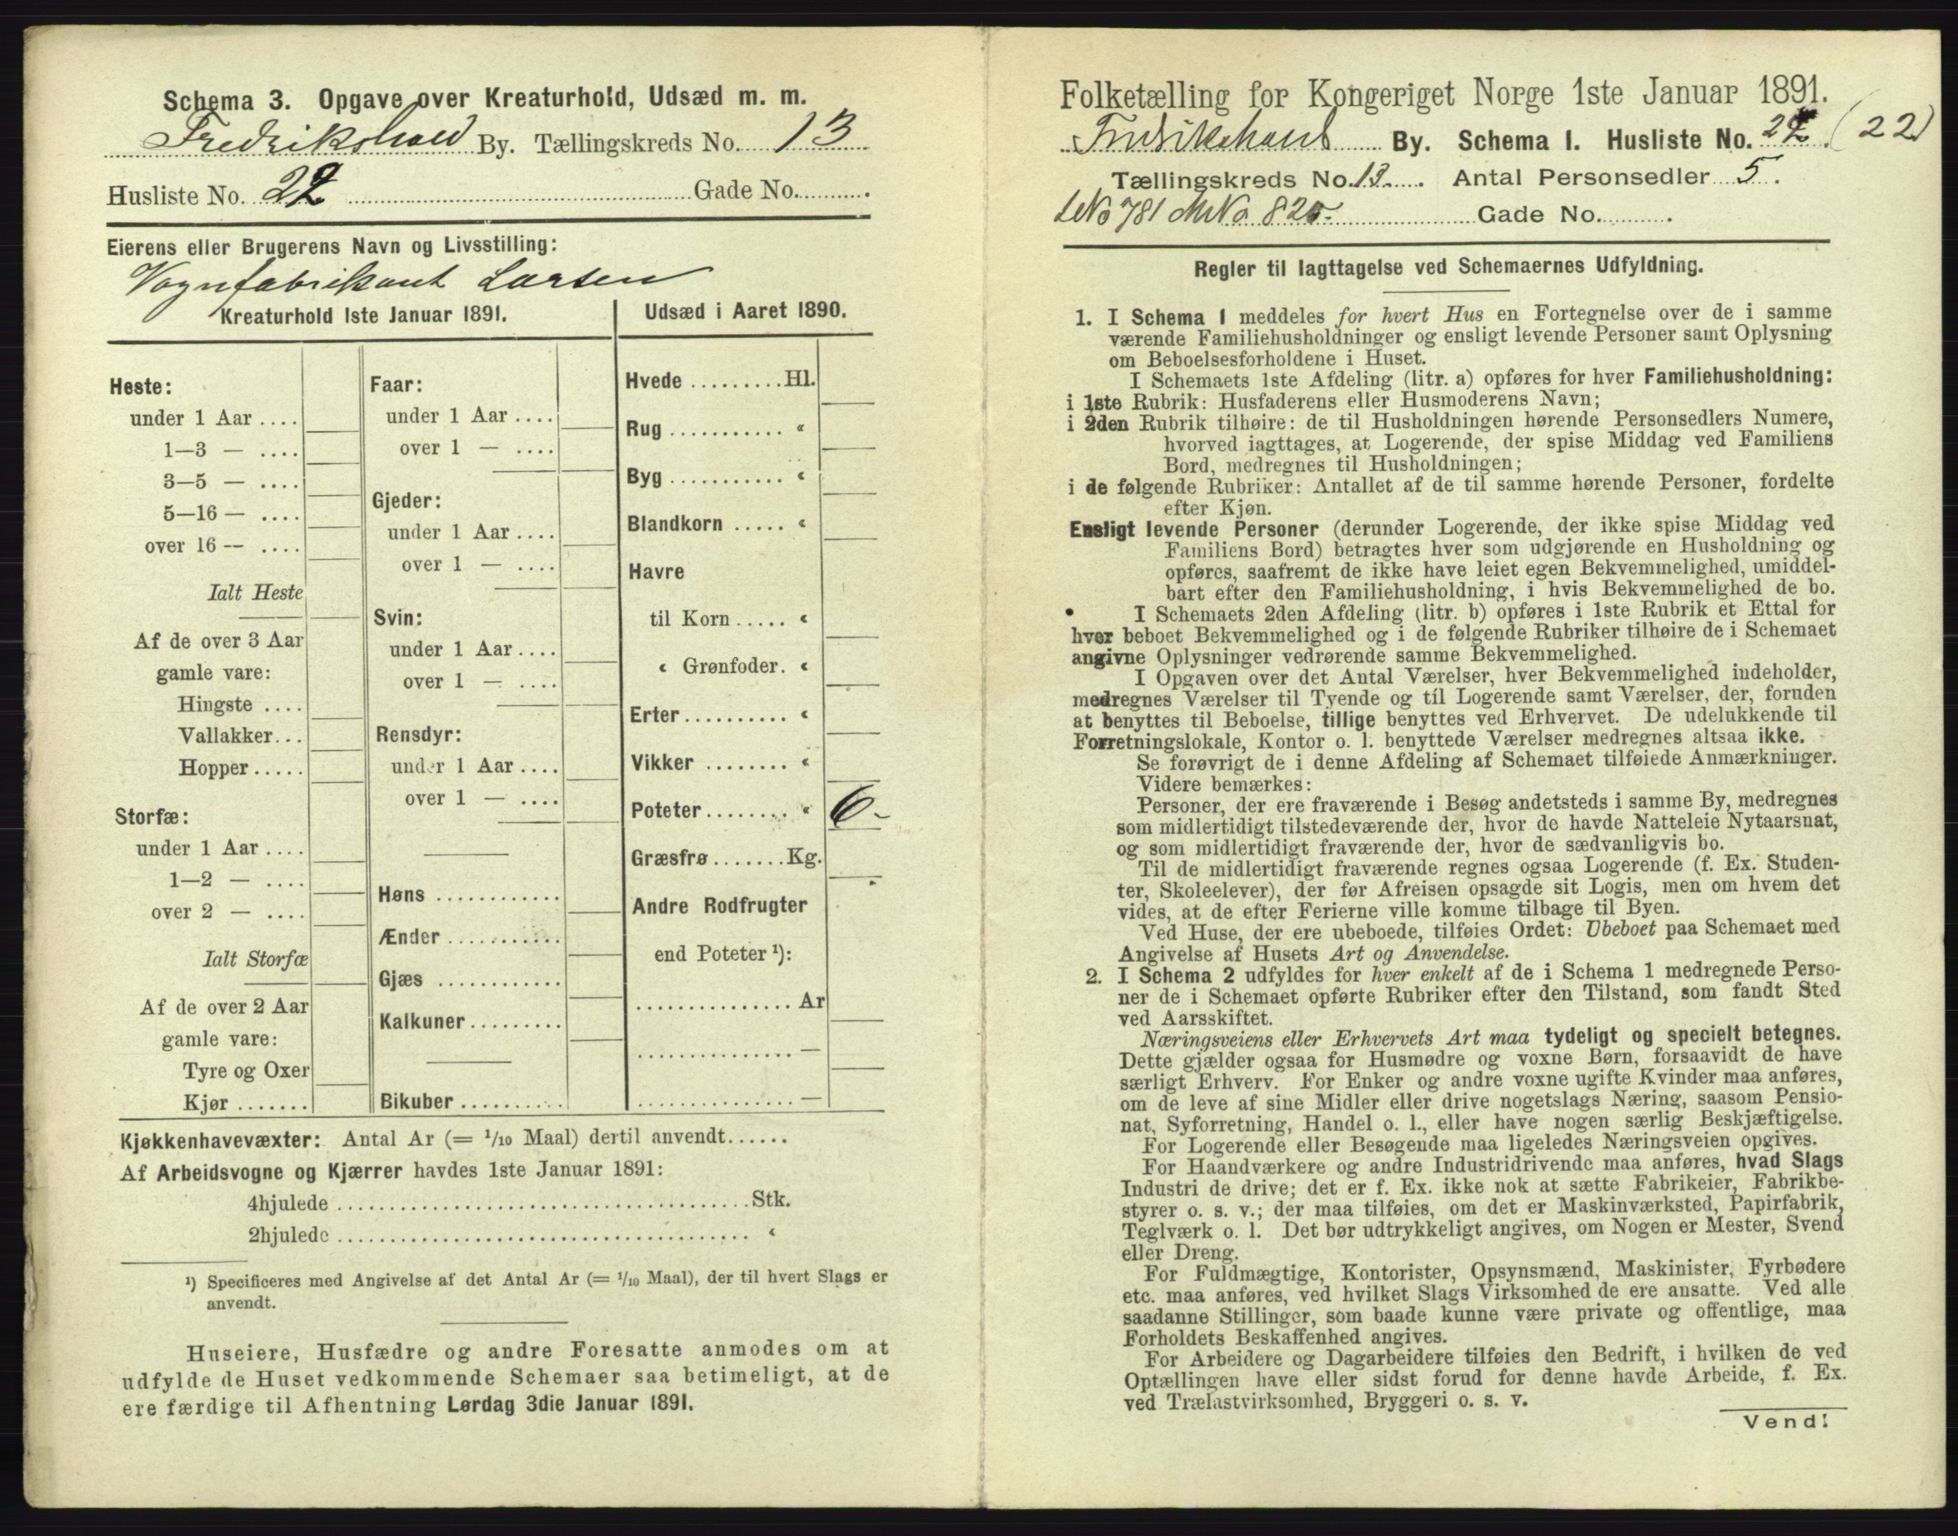 Schema 3. Opgave over Kreaturhold, Udsæd m. m.
Fredrikshald By. Tællingskreds No. 13
Husliste No. 22 Gade No.
Eierens eller Brugerens Navn og Livsstilling:
Vognfabrikant Larsen
Kreaturhold 1ste Januar 1891.
Heste:
under 1 Aar ....
1—3 — ....
3—5 — ....
5—16 — ....
over 16 — ....
Ialt Heste
Af de over 3 Aar
gamle vare:
Hingste ....
Vallakker...
Hopper.....
Storfæ:
under 1 Aar ....
1—2 — ....
over 2 — ....
Ialt Storfæ
Af de over 2 Aar
gamle vare:
Tyre og Oxer
Kjør .......
Faar:
under 1 Aar ....
over 1 — ....
Gjeder:
under 1 Aar ....
over 1 — ....
Svin:
under 1 Aar ....
over 1 — ....
Rensdyr:
under 1 Aar ....
over 1 — ....
Høns ............
Ænder ...........
Gjæs ............
Kalkuner.........
Bikuber ..........
Udsæd i Aaret 1890.
Hvede .........Hl.
Rug ........... «
Byg ........... «
Blandkorn ..... «
Havre
til Korn ..... «
« Grønfoder. «
Erter .......... «
Vikker ........ «
Poteter........ « 6-
Græsfrø .......Kg.
Andre Rodfrugter
end Poteter ¹):
............... Ar
............... —
............... —
Kjøkkenhavevæxter: Antal Ar (= 1/10 Maal) dertil anvendt......
Af Arbeidsvogne og Kjærrer havdes 1ste Januar 1891:
4hjulede ........................................Stk.
2hjulede ........................................ «
¹) Specificeres med Angivelse af det Antal Ar (= 1/10 Maal), der til hvert Slags er
anvendt.
Huseiere, Husfædre og andre Foresatte anmodes om at
udfylde de Huset vedkommende Schemaer saa betimeligt, at de
ere færdige til Afhentning Lørdag 3die Januar 1891.
Folketælling for Kongeriget Norge 1ste Januar 1891.
Fredrikshald By. Schema I. Husliste No. 22. (22)
Tællingskreds No. 13. Antal Personsedler 5.
LNo 781 MNo. 825- Gade No.
Regler til Iagttagelse ved Schemaernes Udfyldning.
1. I Schema 1 meddeles for hvert Hus en Fortegnelse over de i samme
værende Familiehusholdninger og ensligt levende Personer samt Oplysning
om Beboelsesforholdene i Huset.
I Schemaets 1ste Afdeling (litr. a) opføres for hver Familiehusholdning:
i 1ste Rubrik: Husfaderens eller Husmoderens Navn;
i 2den Rubrik tilhøire: de til Husholdningen hørende Personsedlers Numere,
hvorved iagttages, at Logerende, der spise Middag ved Familiens
Bord, medregnes til Husholdningen;
i de følgende Rubriker: Antallet af de til samme hørende Personer, fordelte
efter Kjøn.
Ensligt levende Personer (derunder Logerende, der ikke spise Middag ved
Familiens Bord) betragtes hver som udgjørende en Husholdning og
opføres, saafremt de ikke have leiet egen Bekvemmelighed, umiddel-
bart efter den Familiehusholdning, i hvis Bekvemmelighed de bo.
I Schemaets 2den Afdeling (litr. b) opføres i 1ste Rubrik et Ettal for
hver beboet Bekvemmelighed og i de følgende Rubriker tilhøire de i Schemaet
angivne Oplysninger vedrørende samme Bekvemmelighed.
I Opgaven over det Antal Værelser, hver Bekvemmelighed indeholder,
medregnes Værelser til Tyende og til Logerende samt Værelser, der, foruden
at benyttes til Beboelse, tillige benyttes ved Erhvervet. De udelukkende til
Forretningslokale, Kontor o. l. benyttede Værelser medregnes altsaa ikke.
Se forøvrigt de i denne Afdeling af Schemaet tilføiede Anmærkninger.
Videre bemærkes:
Personer, der ere fraværende i Besøg andetsteds i samme By, medregnes
som midlertidigt tilstedeværende der, hvor de havde Natteleie Nytaarsnat,
og som midlertidigt fraværende der, hvor de sædvanligvis bo.
Til de midlertidigt fraværende regnes ogsaa Logerende (f. Ex. Studen-
ter, Skoleelever), der før Afreisen opsagde sit Logis, men om hvem det
vides, at de efter Ferierne ville komme tilbage til Byen.
Ved Huse, der ere ubeboede, tilføies Ordet: Ubeboet paa Schemaet med
Angivelse af Husets Art og Anvendelse.
2. I Schema 2 udfyldes for hver enkelt af de i Schema 1 medregnede Perso-
ner de i Schemaet opførte Rubriker efter den Tilstand, som fandt Sted
ved Aarsskiftet.
Næringsveiens eller Erhvervets Art maa tydeligt og specielt betegnes.
Dette gjælder ogsaa for Husmødre og voxne Børn, forsaavidt de have
særligt Erhverv. For Enker og andre voxne ugifte Kvinder maa anføres,
om de leve af sine Midler eller drive nogetslags Næring, saasom Pensio-
nat, Syforretning, Handel o. l., eller have nogen særlig Beskjæftigelse.
For Logerende eller Besøgende maa ligeledes Næringsveien opgives.
For Haandværkere og andre Industridrivende maa anføres, hvad Slags
Industri de drive; det er f. Ex. ikke nok at sætte Fabrikeier, Fabrikbe-
styrer o. s. v.; der maa tilføies, om det er Maskinværksted, Papirfabrik,
Teglværk o. l. Det bør udtrykkeligt angives, om Nogen er Mester, Svend
eller Dreng.
For Fuldmægtige, Kontorister, Opsynsmænd, Maskinister, Fyrbødere
etc. maa anføres, ved hvilket Slags Virksomhed de ere ansatte. Ved alle
saadanne Stillinger, som baade kunne være private og offentlige, maa
Forholdets Beskaffenhed angives.
For Arbeidere og Dagarbeidere tilføies den Bedrift, i hvilken de ved
Optællingen have eller sidst forud for denne havde Arbeide, f. Ex.
ved Trælastvirksomhed, Bryggeri o. s. v.
Vend!